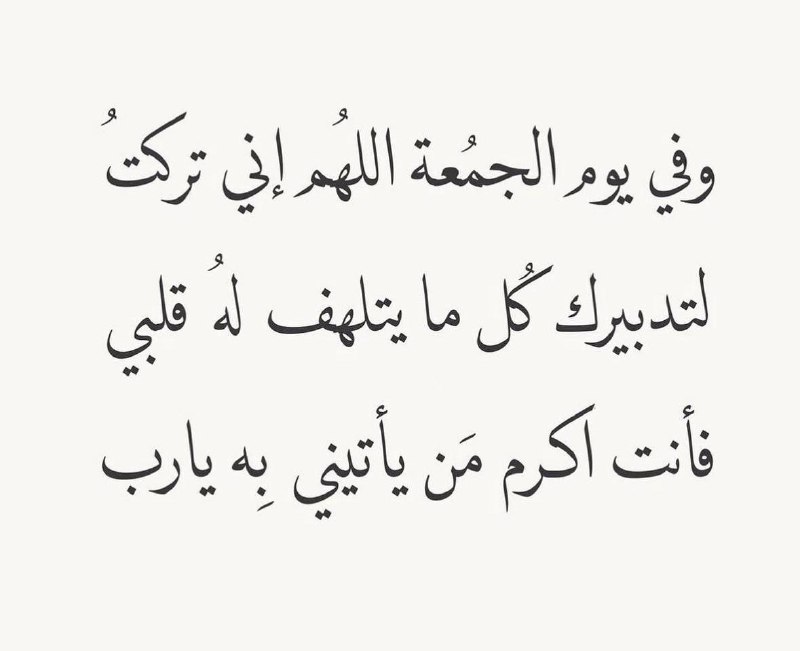 وفي يوم الجمُعة اللهُم إني تركتُ
لتدبيرك كُل ما يتلهف لهُ قلبي
فأنت اكرم مَن يأتيني بِه يارب